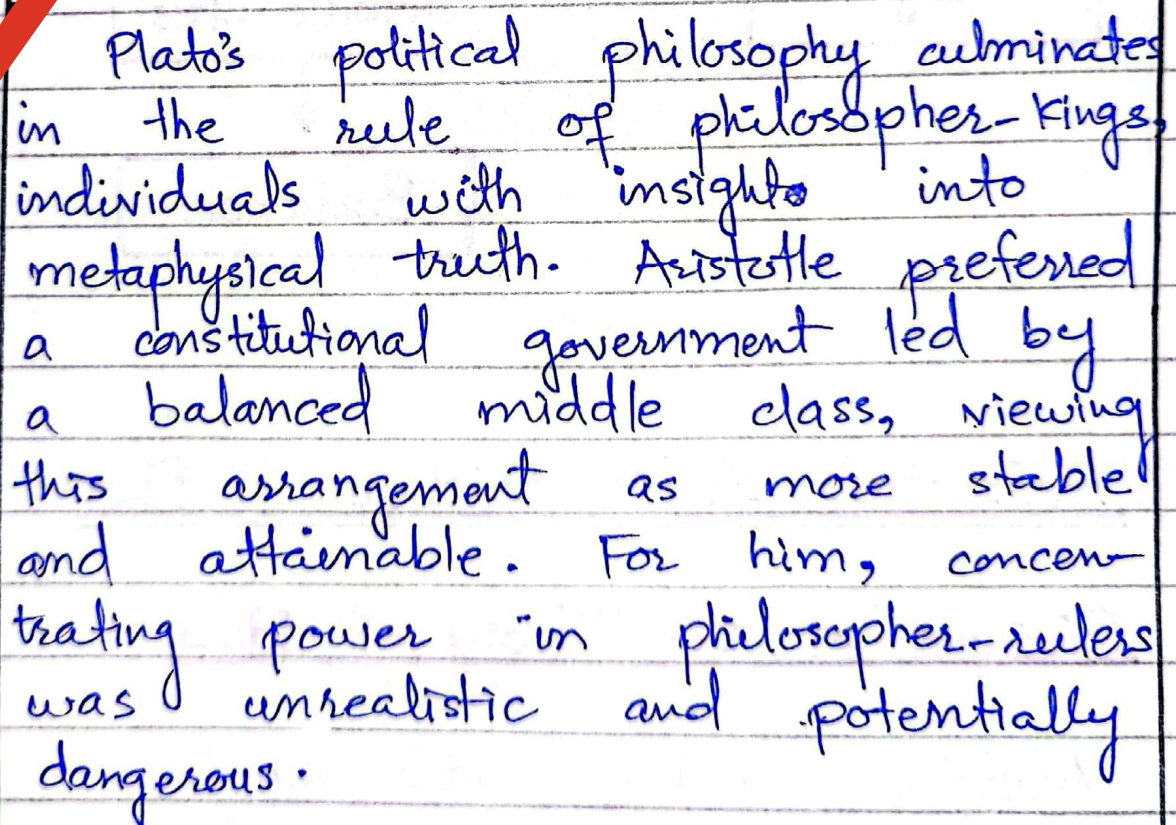 Plato's political philosophy culminates
in the rule of philosopher-kings,
individuals with insight into
metaphysical truth. Aristotle preferred
a constitutional government led by
a balanced middle class, viewing
this arrangement as more stable
and attainable. For him, concen-
trating power in philosopher-rulers
was unrealistic and potentially
dangerous.